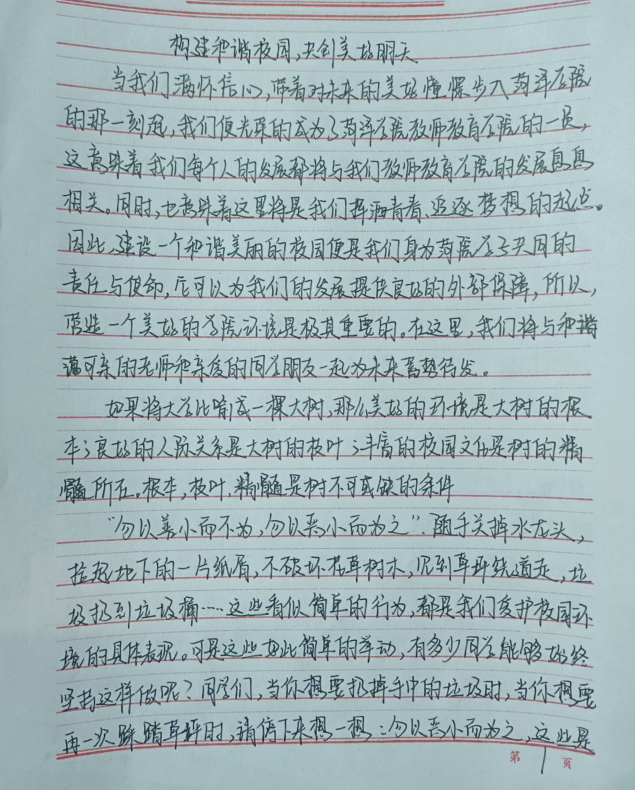 构建和谐校园,共创美好明天
当我们满怀信心,带着对未来的美好憧憬步入菏泽学院
的那一刻起,我们便光荣的成为了菏泽学院教师教育学院的一员,
这意味着我们每个人的发展都将与我们教师教育学院的发展息息
相关。同时,也意味着这里将是我们挥洒青春、追逐梦想的起点。
因此,建设一个和谐美丽的校园便是我们身为菏院学子共同的
责任与使命,它可以为我们的发展提供良好的外部保障,所以,
营造一个美好的学院环境是极其重要的。在这里,我们将与和谐
蔼可亲的老师和亲爱的同学朋友一起为未来蓄势待发。
如果将大学比喻成一棵大树,那么美好的环境是大树的根
本;良好的人际关系是大树的枝叶;丰富的校园文化是树的精
髓所在。根本,枝叶,精髓是树不可或缺的条件
“勿以善小而不为,勿以恶小而为之”.随手关掉水龙头,
捡起地下的一片纸屑,不破坏花草树木,见到草坪绕道走,垃
圾扔到垃圾桶……这些看似简单的行为,都是我们爱护校园环
境的具体表现。可是这些如此简单的举动,有多少同学能够始终
坚持这样做呢?同学们,当你想要扔掉手中的垃圾时,当你想要
再一次踩踏草坪时,请停下来想一想:勿以恶小而为之,这些是
第 1 页